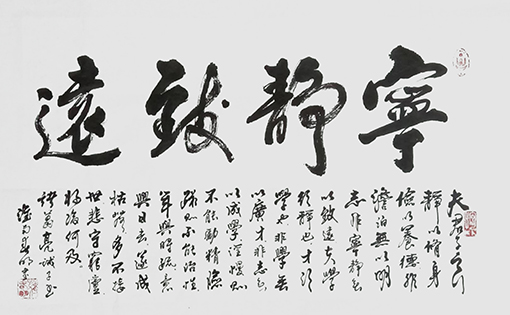 寧靜致遠
夫君子之行
靜以脩身
儉以養德非
澹泊無以明
志非寧靜無
以致遠夫學
須靜也才須
學也非學無
以廣才非志無
以成學淫慢則
不能勵精險
躁則不能治性
年與時馳意
與日去遂成
枯落多不接
世悲守窮廬
將復何及
諸葛亮誡子書